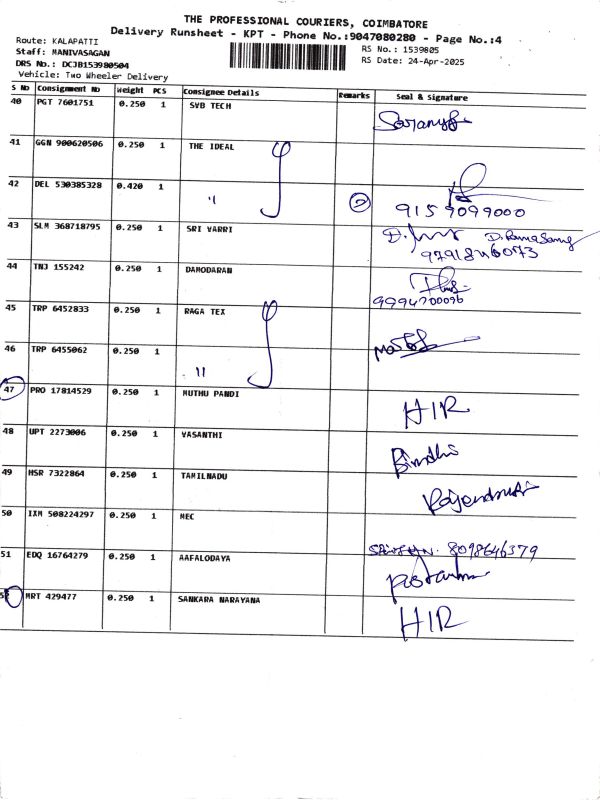 THE PROFESSIONAL COURIERS, COIMBATORE
Delivery Runsheet - KPT - Phone No.:9047080280 - Page No.:4
Route: KALAPATTI
RS No.: 1539805
Staff: MANIVASAGAN
RS Date: 24-Apr-2025
DRS No.: DCJB153980504
Vehicle: Two Wheeler Delivery
S No Consignment No Weight PCS Consignee Details Remarks Seal & Signature
40 PGT 7601751 0.250 1 SVB TECH
41 GGN 900620506 0.250 1 THE IDEAL
42 DEL 530385328 0.420 1 " 2
9159099000
43 SLM 368718795 0.250 1 SRI VARRI D. Ramasamy
44 TNJ 155242 0.250 1 DAMODARAN
9994700096
45 TRP 6452833 0.250 1 RAGA TEX
46 TRP 6455062 0.250 1 "
47 PRO 17814529 0.250 1 MUTHU PANDI H/R
48 UPT 2273006 0.250 1 VASANTHI Bindhu
49 HSR 7322864 0.250 1 TAMILNADU
50 IXM 508224297 0.250 1 MEC 8098646379
51 EDQ 16764279 0.250 1 AAFALODAYA
52 MRT 429477 0.250 1 SANKARA NARAYANA H/R